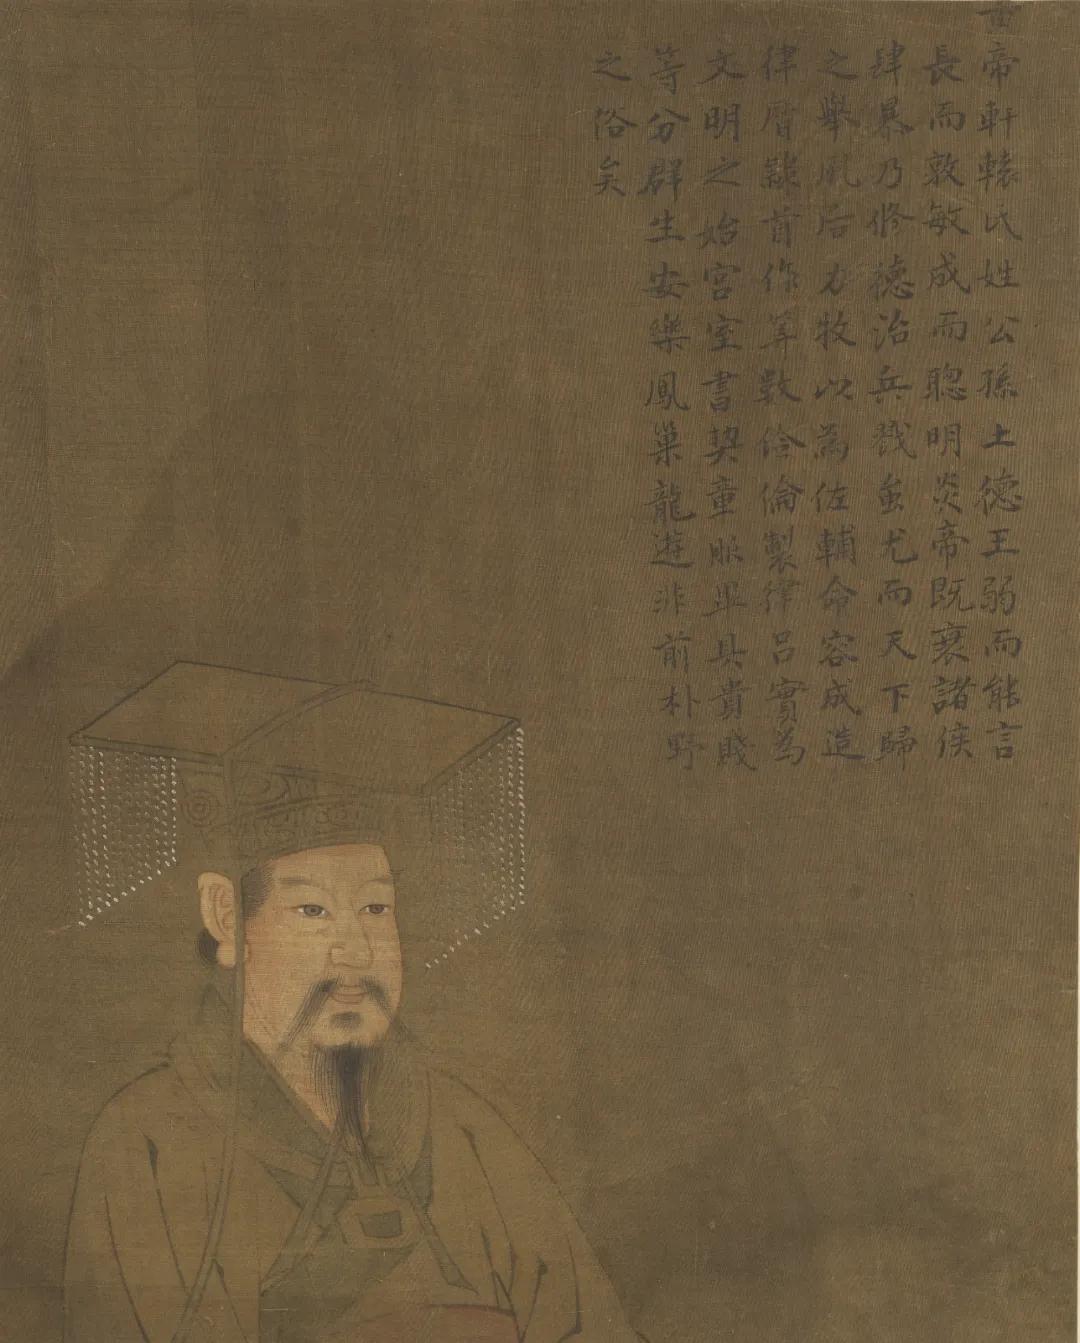 黃帝軒轅氏姓公孫土德王弱而能言
長而敦敏成而聰明炎帝既衰諸侯
肆暴乃修德治兵戮蚩尤而天下歸
之舉風后力牧以為佐輔命容成造
律曆隸首作筭數伶倫製律呂實為
文明之始宮室書契車服器具貴賤
等分群生安樂鳳巢龍遊非前朴野
之俗矣